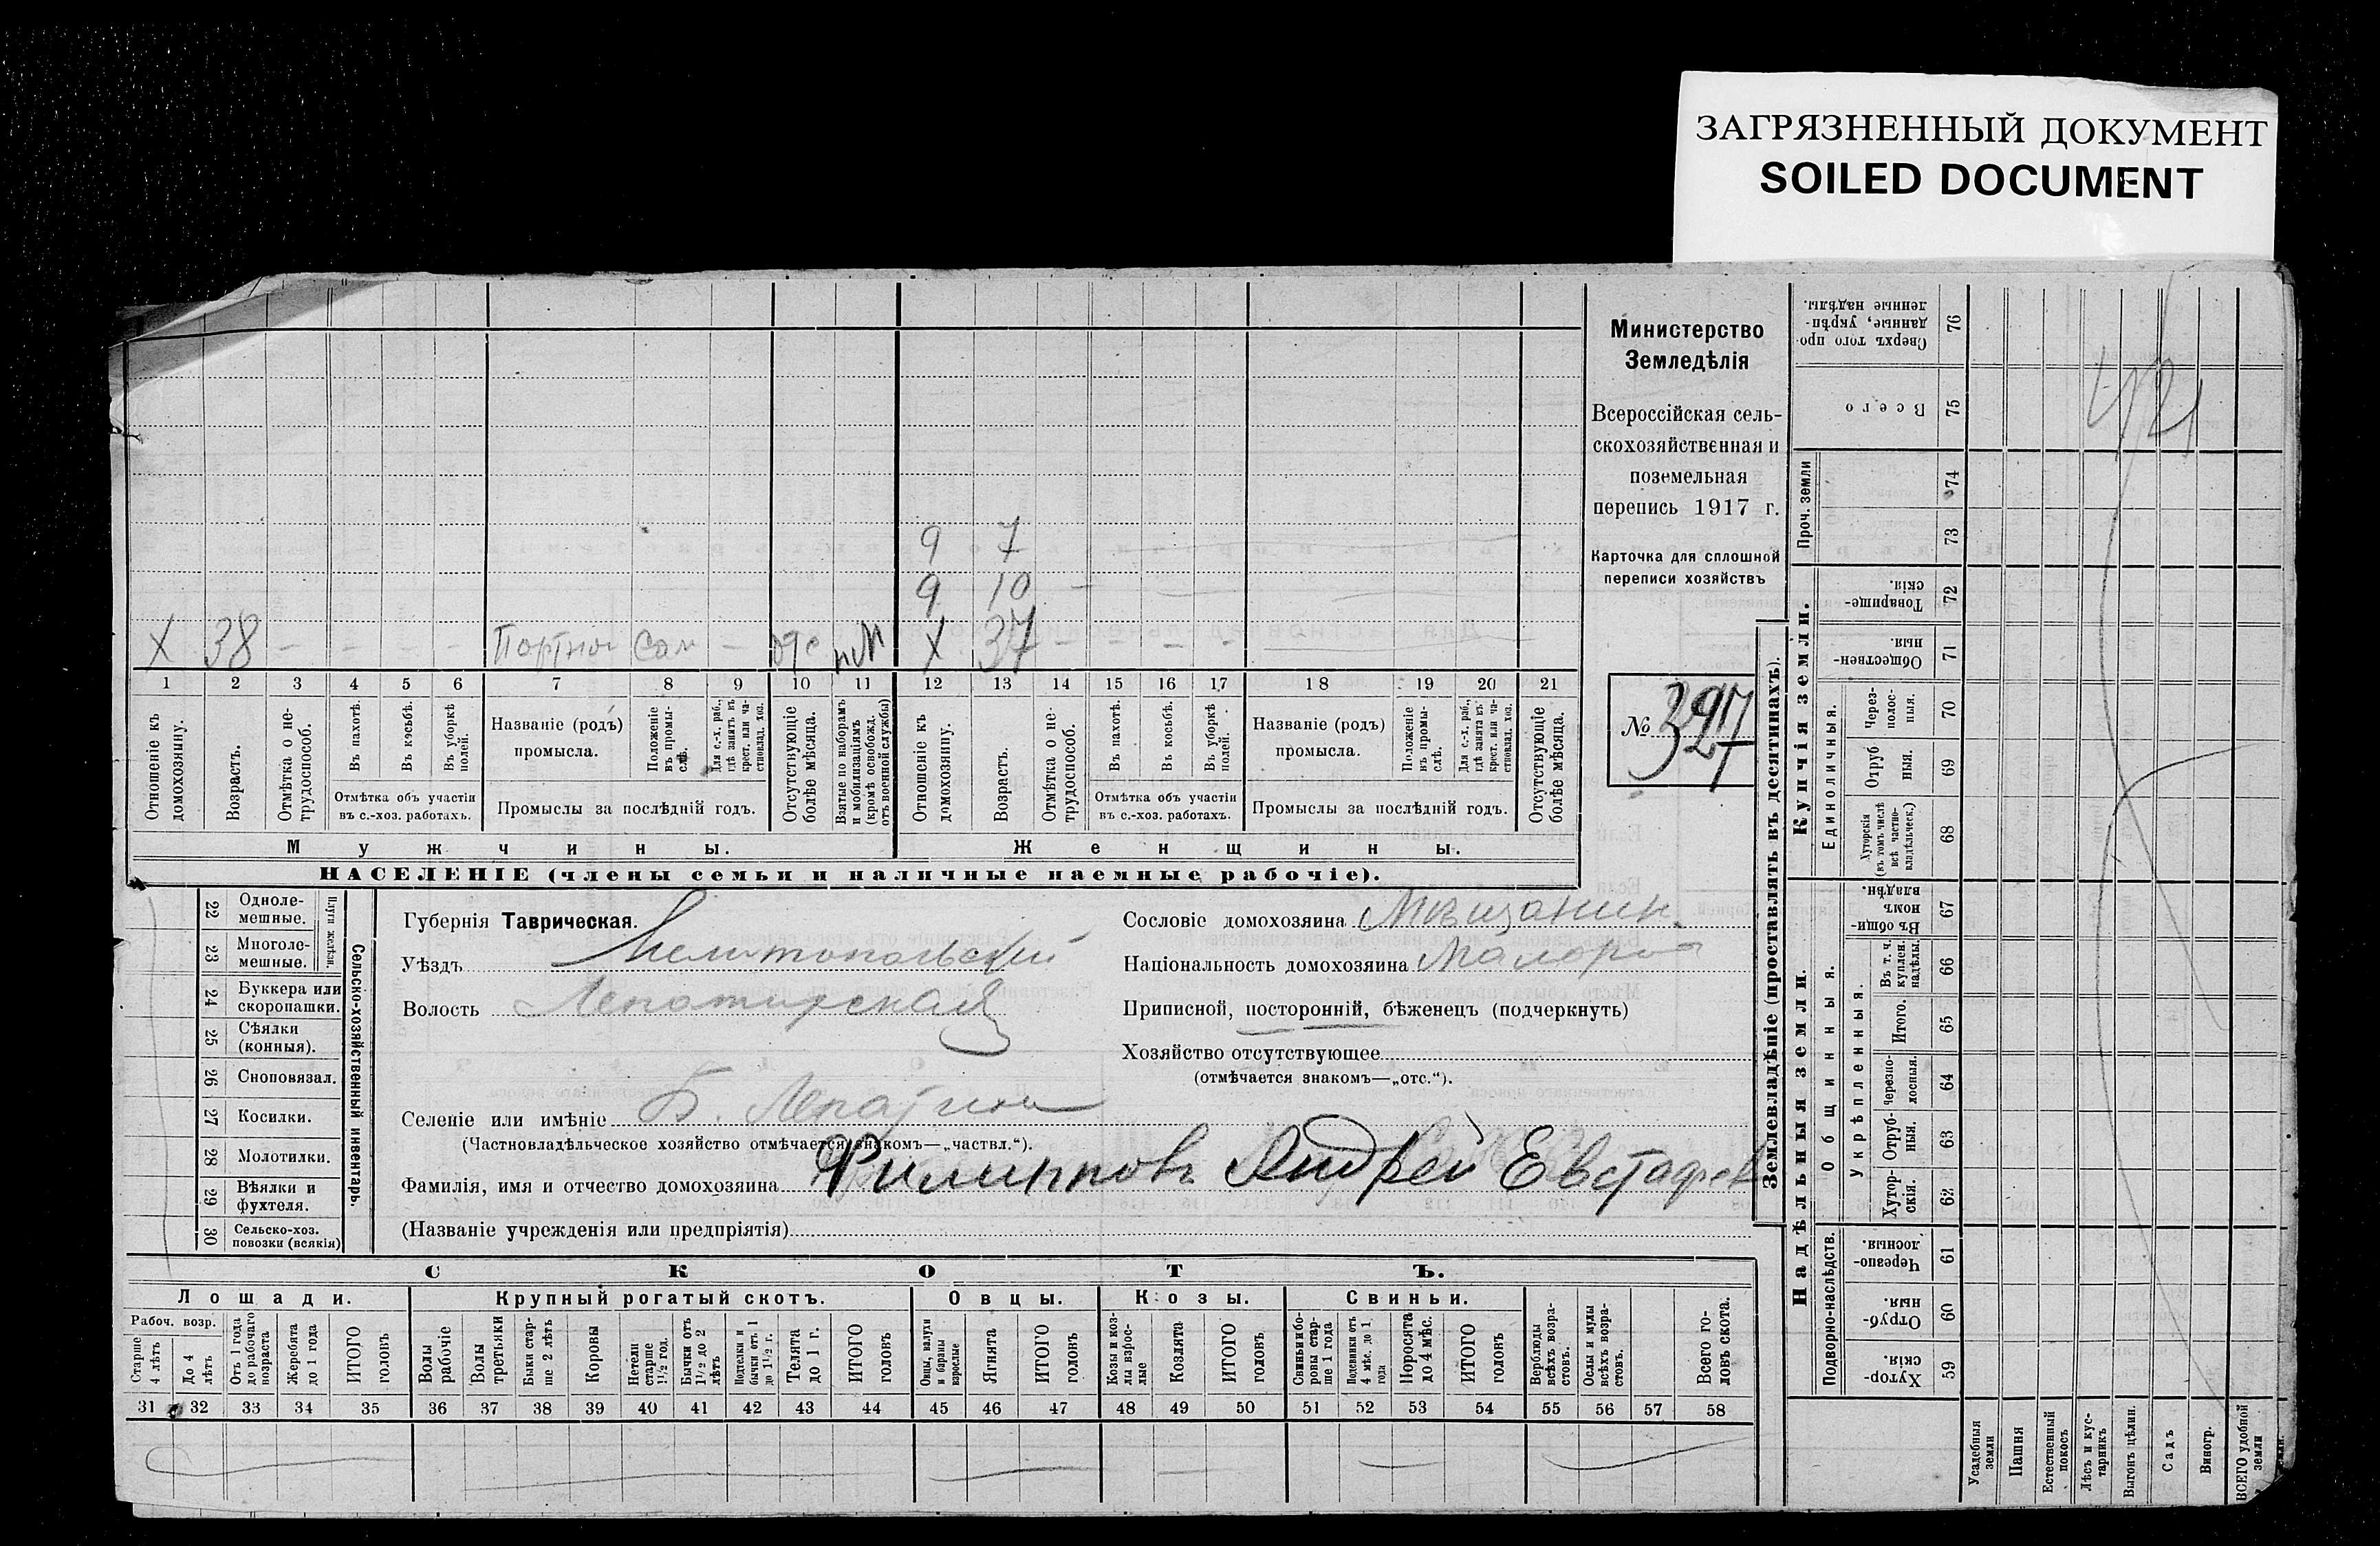 ЗАГРЯЗНЕННЫЙ ДОКУМЕНТ
SOILED DOCUMENT
Министерство
Земледѣлія
Всероссійская сель-
скохозяйственная и
поземельная
перепись 1917 г.
Карточка для сплошной
переписи хозяйствъ
№ 327
9 7
9 10
X 38 Портной сам отс пМ X 37
1 2 3 4 5 6 7 8 9 10 11 12 13 14 15 16 17 18 19 20 21
Отношеніе къ домохозяину.
Возрастъ.
Отмѣтка о не-трудоспособ.
Въ пахотѣ.
Въ косьбѣ.
Въ уборкѣ полей.
Отмѣтка объ участіи въ с.-хоз. работахъ.
Названіе (родъ) промысла.
Положеніе въ промы-слѣ.
Для с.-х. раб., гдѣ занятъ въ крест. или ча-стновлад. хоз.
Промыслы за послѣдній годъ.
Отсутствующіе болѣе мѣсяца.
Взятые по наборамъ и мобилизаціямъ (кромѣ освобожд. отъ военной службы)
Отношеніе къ домохозяину.
Возрастъ.
Отмѣтка о не-трудоспособ.
Въ пахотѣ.
Въ косьбѣ.
Въ уборкѣ полей.
Отмѣтка объ участіи въ с.-хоз. работахъ.
Названіе (родъ) промысла.
Положеніе въ промы-слѣ.
Для с.-х. раб., гдѣ занятъ въ крест. или ча-стновлад. хоз.
Промыслы за послѣдній годъ.
Отсутствующіе болѣе мѣсяца.
Мужчины. Женщины.
НАСЕЛЕНІЕ (члены семьи и наличные наемные рабочіе).
22 Одноле-мешные.
23 Многоле-мешные.
Плуги желѣзн.
24 Буккера или скоропашки.
25 Сѣялки (конныя).
26 Сноповязал.
27 Косилки.
28 Молотилки.
29 Вѣялки и фухтеля.
30 Сельско-хоз. повозки (всякія)
Сельско-хозяйственный инвентарь.
Губернія Таврическая.
Уѣздъ Мелитопольскій
Волость Лепатихская
Селеніе или имѣніе Б. Лепатиха
(Частновладѣльческое хозяйство отмѣчается знакомъ—„частвл.“).
Фамилія, имя и отчество домохозяина Филипповъ Андрей Евстафев
(Названіе учрежденія или предпріятія)
Сословіе домохозяина Мѣщанин
Національность домохозяина Малорос
Приписной, посторонній, бѣженецъ (подчеркнуть)
Хозяйство отсутствующее
(отмѣчается знакомъ—„отс.“).
СКОТЪ.
Лошади. Крупный рогатый скотъ. Овцы. Козы. Свиньи.
Рабоч. возр.
Старше 4 лѣтъ
До 4 лѣтъ
Отъ 1 года до рабочаго возраста
Жеребята до 1 года
ИТОГО головъ
Волы рабочіе
Волы третьяки
Быки стар-ше 2 лѣтъ
Коровы
Нетели старше 1½ год.
Бычки отъ 1½ до 2 лѣтъ
Подтелки и бычки отъ 1 до 1½ г.
Телята до 1 г.
ИТОГО головъ
Овцы, валухи и бараны взрослые
Ягнята
ИТОГО головъ
Козы и коз-лы взрос-лые
Козлята
ИТОГО головъ
Свиньи и бо-ровы стар-ше 1 года
Подсвинки отъ 4 мѣс. до 1 года
Поросята до 4 мѣс.
ИТОГО головъ
Верблюды всѣхъ возра-стовъ.
Ослы и мулы всѣхъ возра-стовъ.
Всего го-ловъ скота.
31 32 33 34 35 36 37 38 39 40 41 42 43 44 45 46 47 48 49 50 51 52 53 54 55 56 57 58
Землевладѣніе (проставлять въ десятинахъ).
Купчія земли.
Надѣльныя земли.
Сверхъ того про-данные, укрѣп-ленные надѣлы. 76
Всего 75
Проч. земли
74
73
Товарище-скія. 72
Обществен-ныя. 71
Единоличныя.
Через-полос-ныя. 70
Отруб-ныя. 69
Хуторскія (въ томъ числѣ всѣ частно-владѣльческ.) 68
Общинныя.
Въ общи-номъ владѣн. 67
Укрѣпленныя.
Въ т. ч. куплен. надѣлы. 66
Итого. 65
Черезпо-лосныя. 64
Отруб-ныя. 63
Хутор-скія. 62
Подворно-наслѣдств.
Черезпо-лосныя. 61
Отруб-ныя. 60
Хутор-скія. 59
Усадебныя земли
Пашня
Естественный покосъ
Лѣсъ и кус-тарникъ
Выгонъ цѣлин.
Садъ
Виногр.
ВСЕГО удобной земли